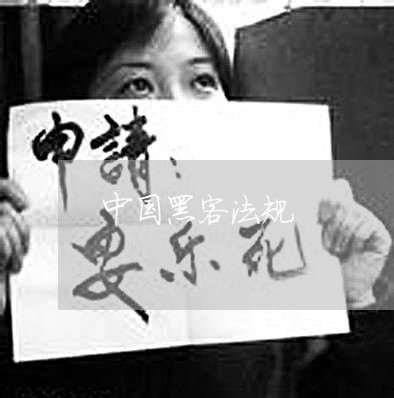 申請：
中国黑客法规
安乐死